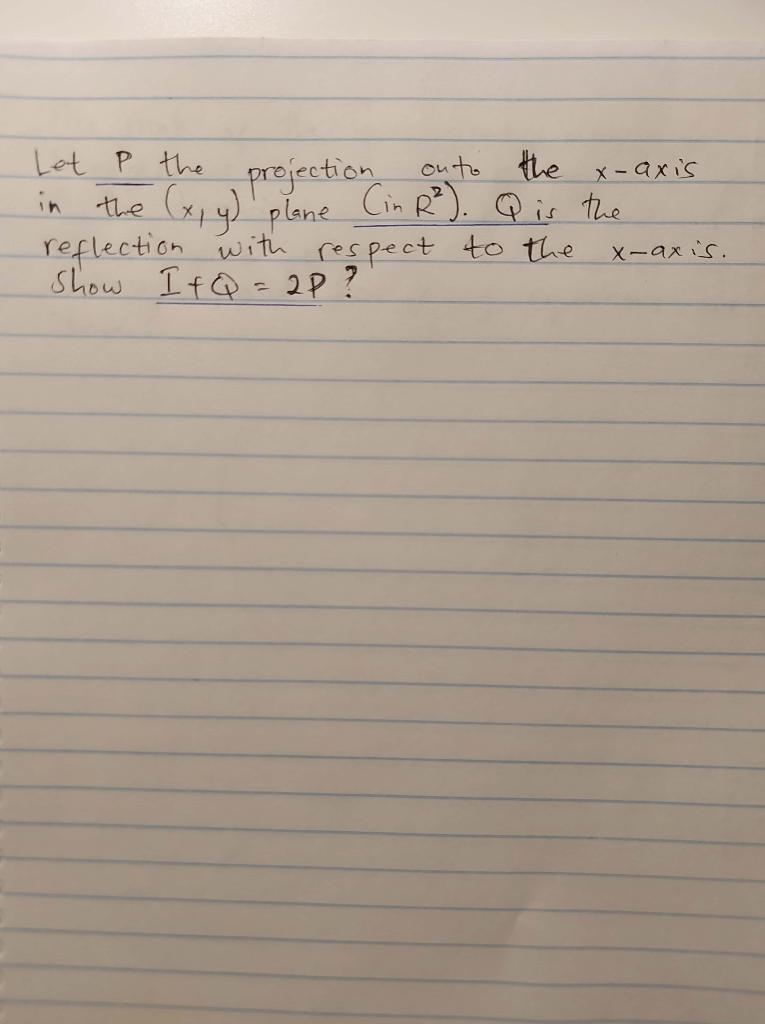 Let P the projection onto the x-axis
in the (x,y) plane (in R²). Q is the
reflection with respect to the x-axis.
Show I+Q = 2P ?